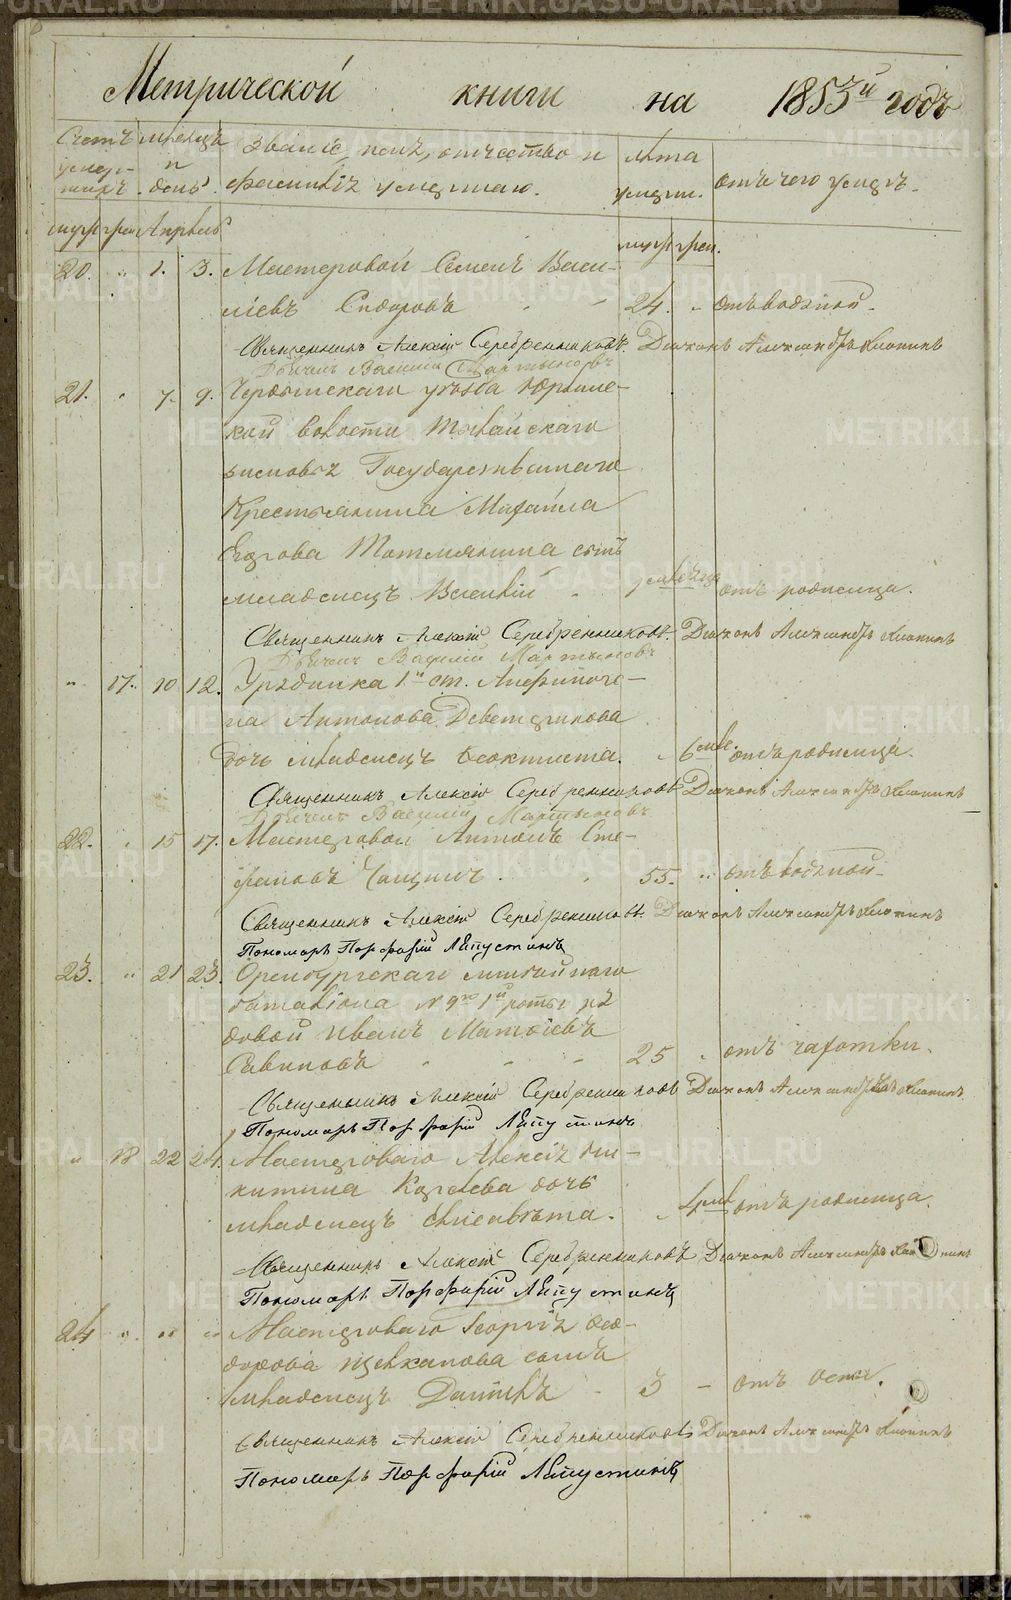 Метрической книги на 1853й годъ
Счетъ умер-шихъ
мѣсяцъ и день
Званіе, имя, отчество и фамилія умершаго.
лѣта умерш.
отъ чего умеръ.
муж жен Апрѣль
муж жен.
20. " 1. 3. Мастеровой Семенъ Васи-
ліевъ Сидоровъ 24. " отъ водяной.
Священникъ Алексій Серебренниковъ. Діаконъ Александръ
Дьячекъ Василій Мартыновъ
21. " 7. 9. Чердынскаго уѣзда
кой волости
Государственнаго
Крестьянина Михаила
Егорова Тотмянина сынъ
младенецъ Василій отъ родимца.
Священникъ Алексій Серебренниковъ. Діаконъ Александръ
Дьячекъ Василій Мартыновъ
" 17. 10 12. Урядника 1й ст. Анфиноге-
на Антонова дочь младенецъ Феоктиста. " 6 отъ родимца.
Священникъ Алексій Серебренниковъ Діаконъ Александръ
Дьячекъ Василій Мартыновъ
22. " 15 17. Мастеровой Антонъ Сте-
фановъ 55. " отъ водяной
Священникъ Алексій Серебренниковъ. Діаконъ Александръ
Пономарь Порфирій Лѣпустинъ
23. " 21 23. Оренбургскаго линейнаго
баталіона № 9го 1й роты ря
довой Иванъ
Савиновъ 25 " отъ чахотки.
Священникъ Алексій Серебренниковъ Діаконъ Александръ
Пономарь Порфирій Лѣпустинъ
" 18 22 24. Мастероваго Алексія Ни-
китина дочь
младенецъ Елисавета. " отъ родимца.
Священникъ Алексій Серебренниковъ Діаконъ Александръ
Пономарь Порфирій Лѣпустинъ
24 " " " Мастероваго Георгія Фео-
дорова сынъ
младенецъ Даніилъ 3 - отъ оспы.
Священникъ Алексій Серебренниковъ Діаконъ Александръ
Пономарь Порфирій Лѣпустинъ
METRIKI.GASO-URAL.RU